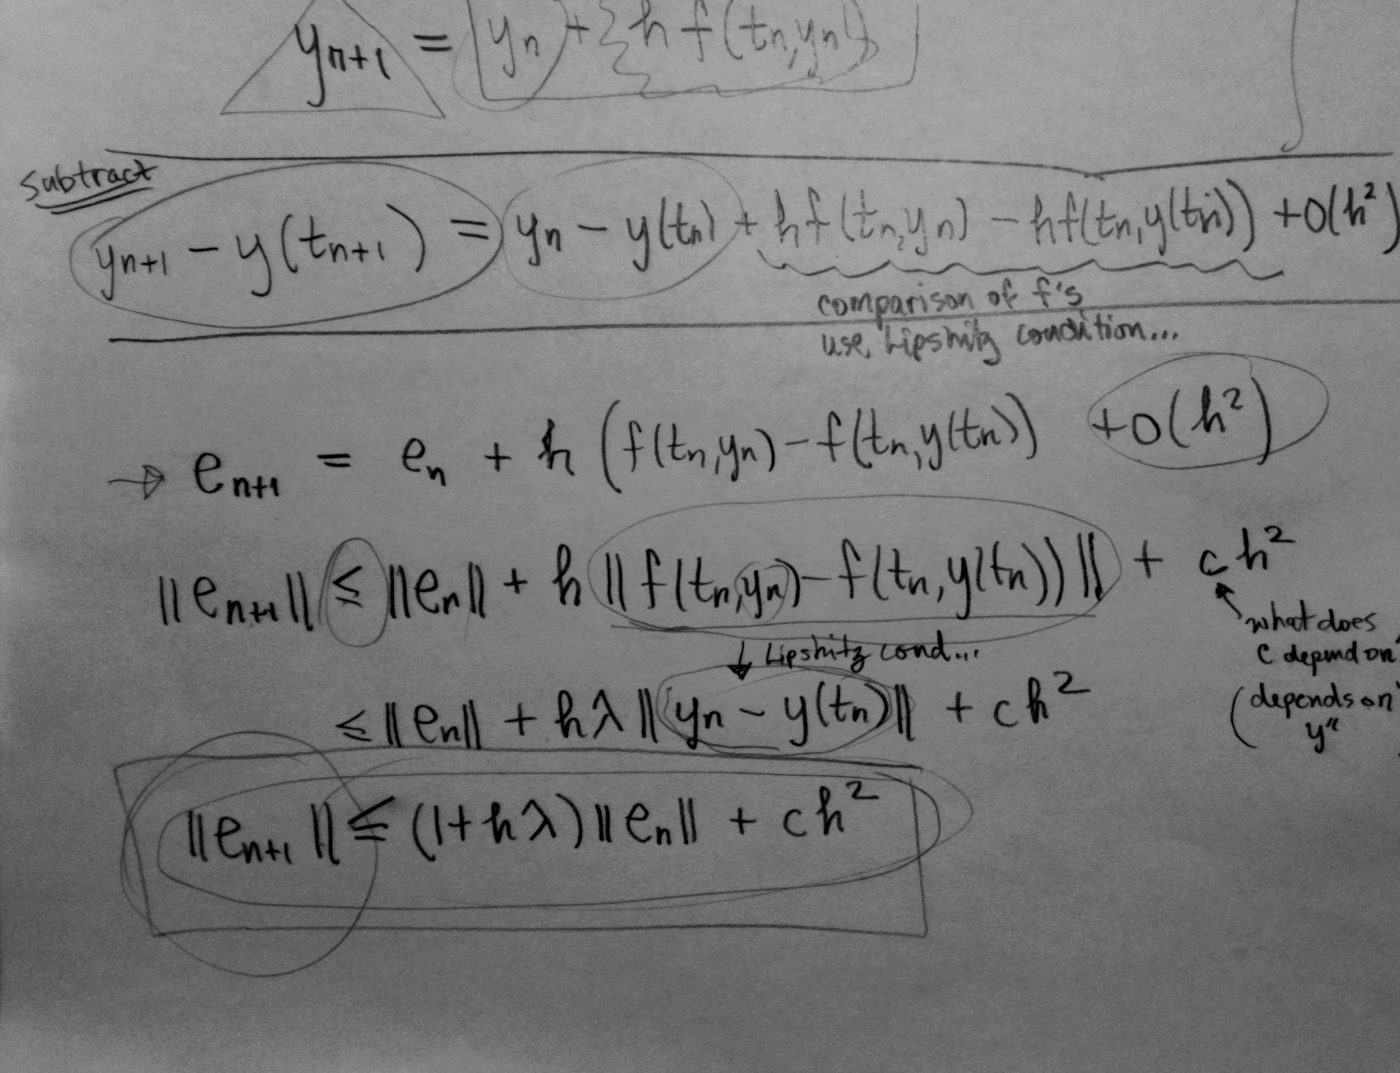 yn+1 = yn + h f(tn,yn)
Subtract
yn+1 − y(tn+1) = yn − y(tn) + hf(tn,yn) − hf(tn,y(tn)) + O(h²)
comparison of f's
use Lipshitz condition...
→ en+1 = en + h (f(tn,yn) − f(tn,y(tn)) + O(h²)
||en+1|| ≤ ||en|| + h || f(tn,yn) − f(tn,y(tn)) || + ch²
what does
c depend on
↓ Lipshitz cond...
(depends on
y"
≤ ||en|| + hλ || yn − y(tn) || + ch²
||en+1|| ≤ (1+hλ) ||en|| + ch²